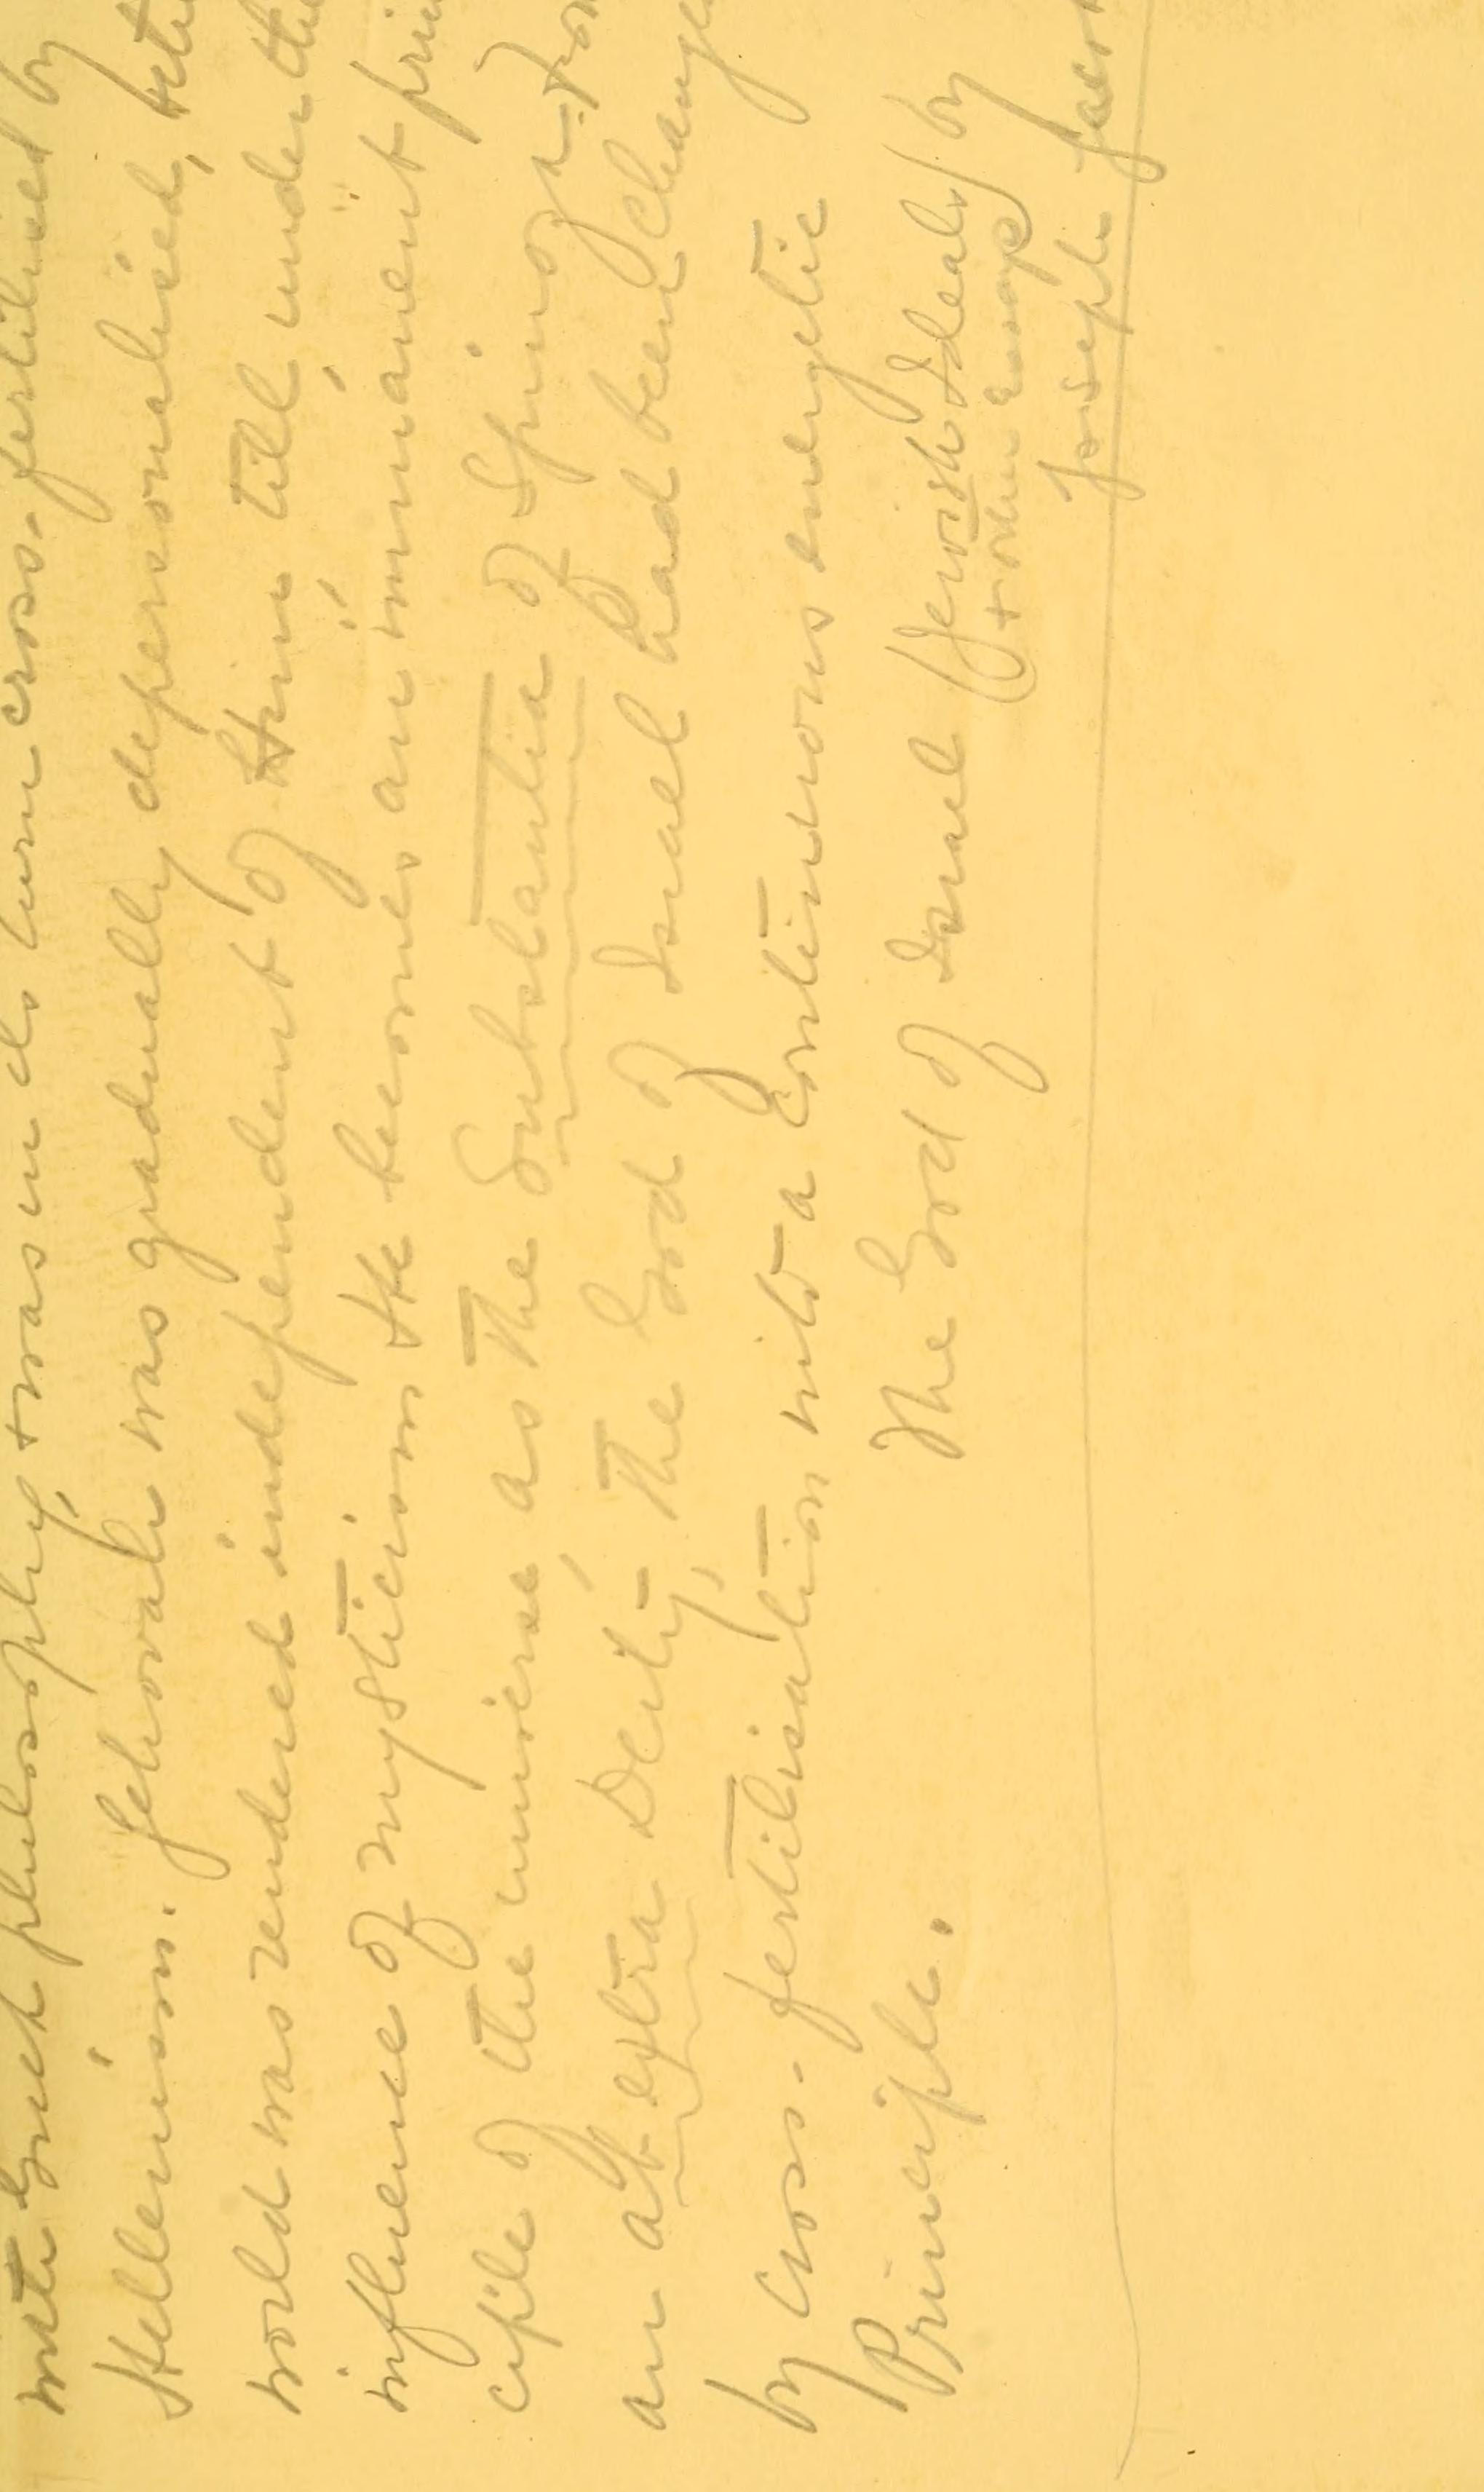 with Greek philosophy, + was in its turn cross-fertilised by
Hellenism. Jehovah was gradually depersonalised,
world was rendered independent of Him till, under the
influence of mysticism He becomes an immanent prin
ciple of the universe, as the Substantia of Spinoza. From
an ab extra Deity, the God of Israel had been changed
by cross-fertilisation into a continuous energetic
Principle. The God of Israel (Jewish Ideals by
+ other essays)
Joseph Jacobs